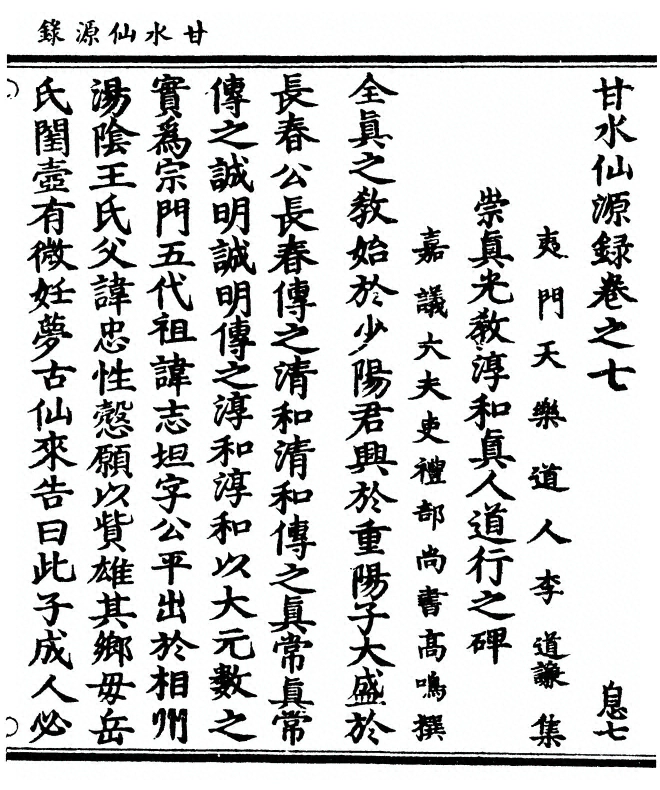 甘水仙源錄
甘水仙源録卷之七
息七
夷門天樂道人李道謙集
崇真光教淳和真人道行之碑
嘉議大夫吏禮部尚書高鳴撰
全真之教始於少陽君興於重陽子大盛於
長春公長春傳之清和清和傳之真常真常
傳之誠明誠明傳之淳和淳和以大元數之
實爲宗門五代祖諱志坦字公平出於相州
湯陰王氏父諱忠性愨願以貲雄其鄉毋岳
氏閨壼有微妊夢古仙來告曰此子成人必